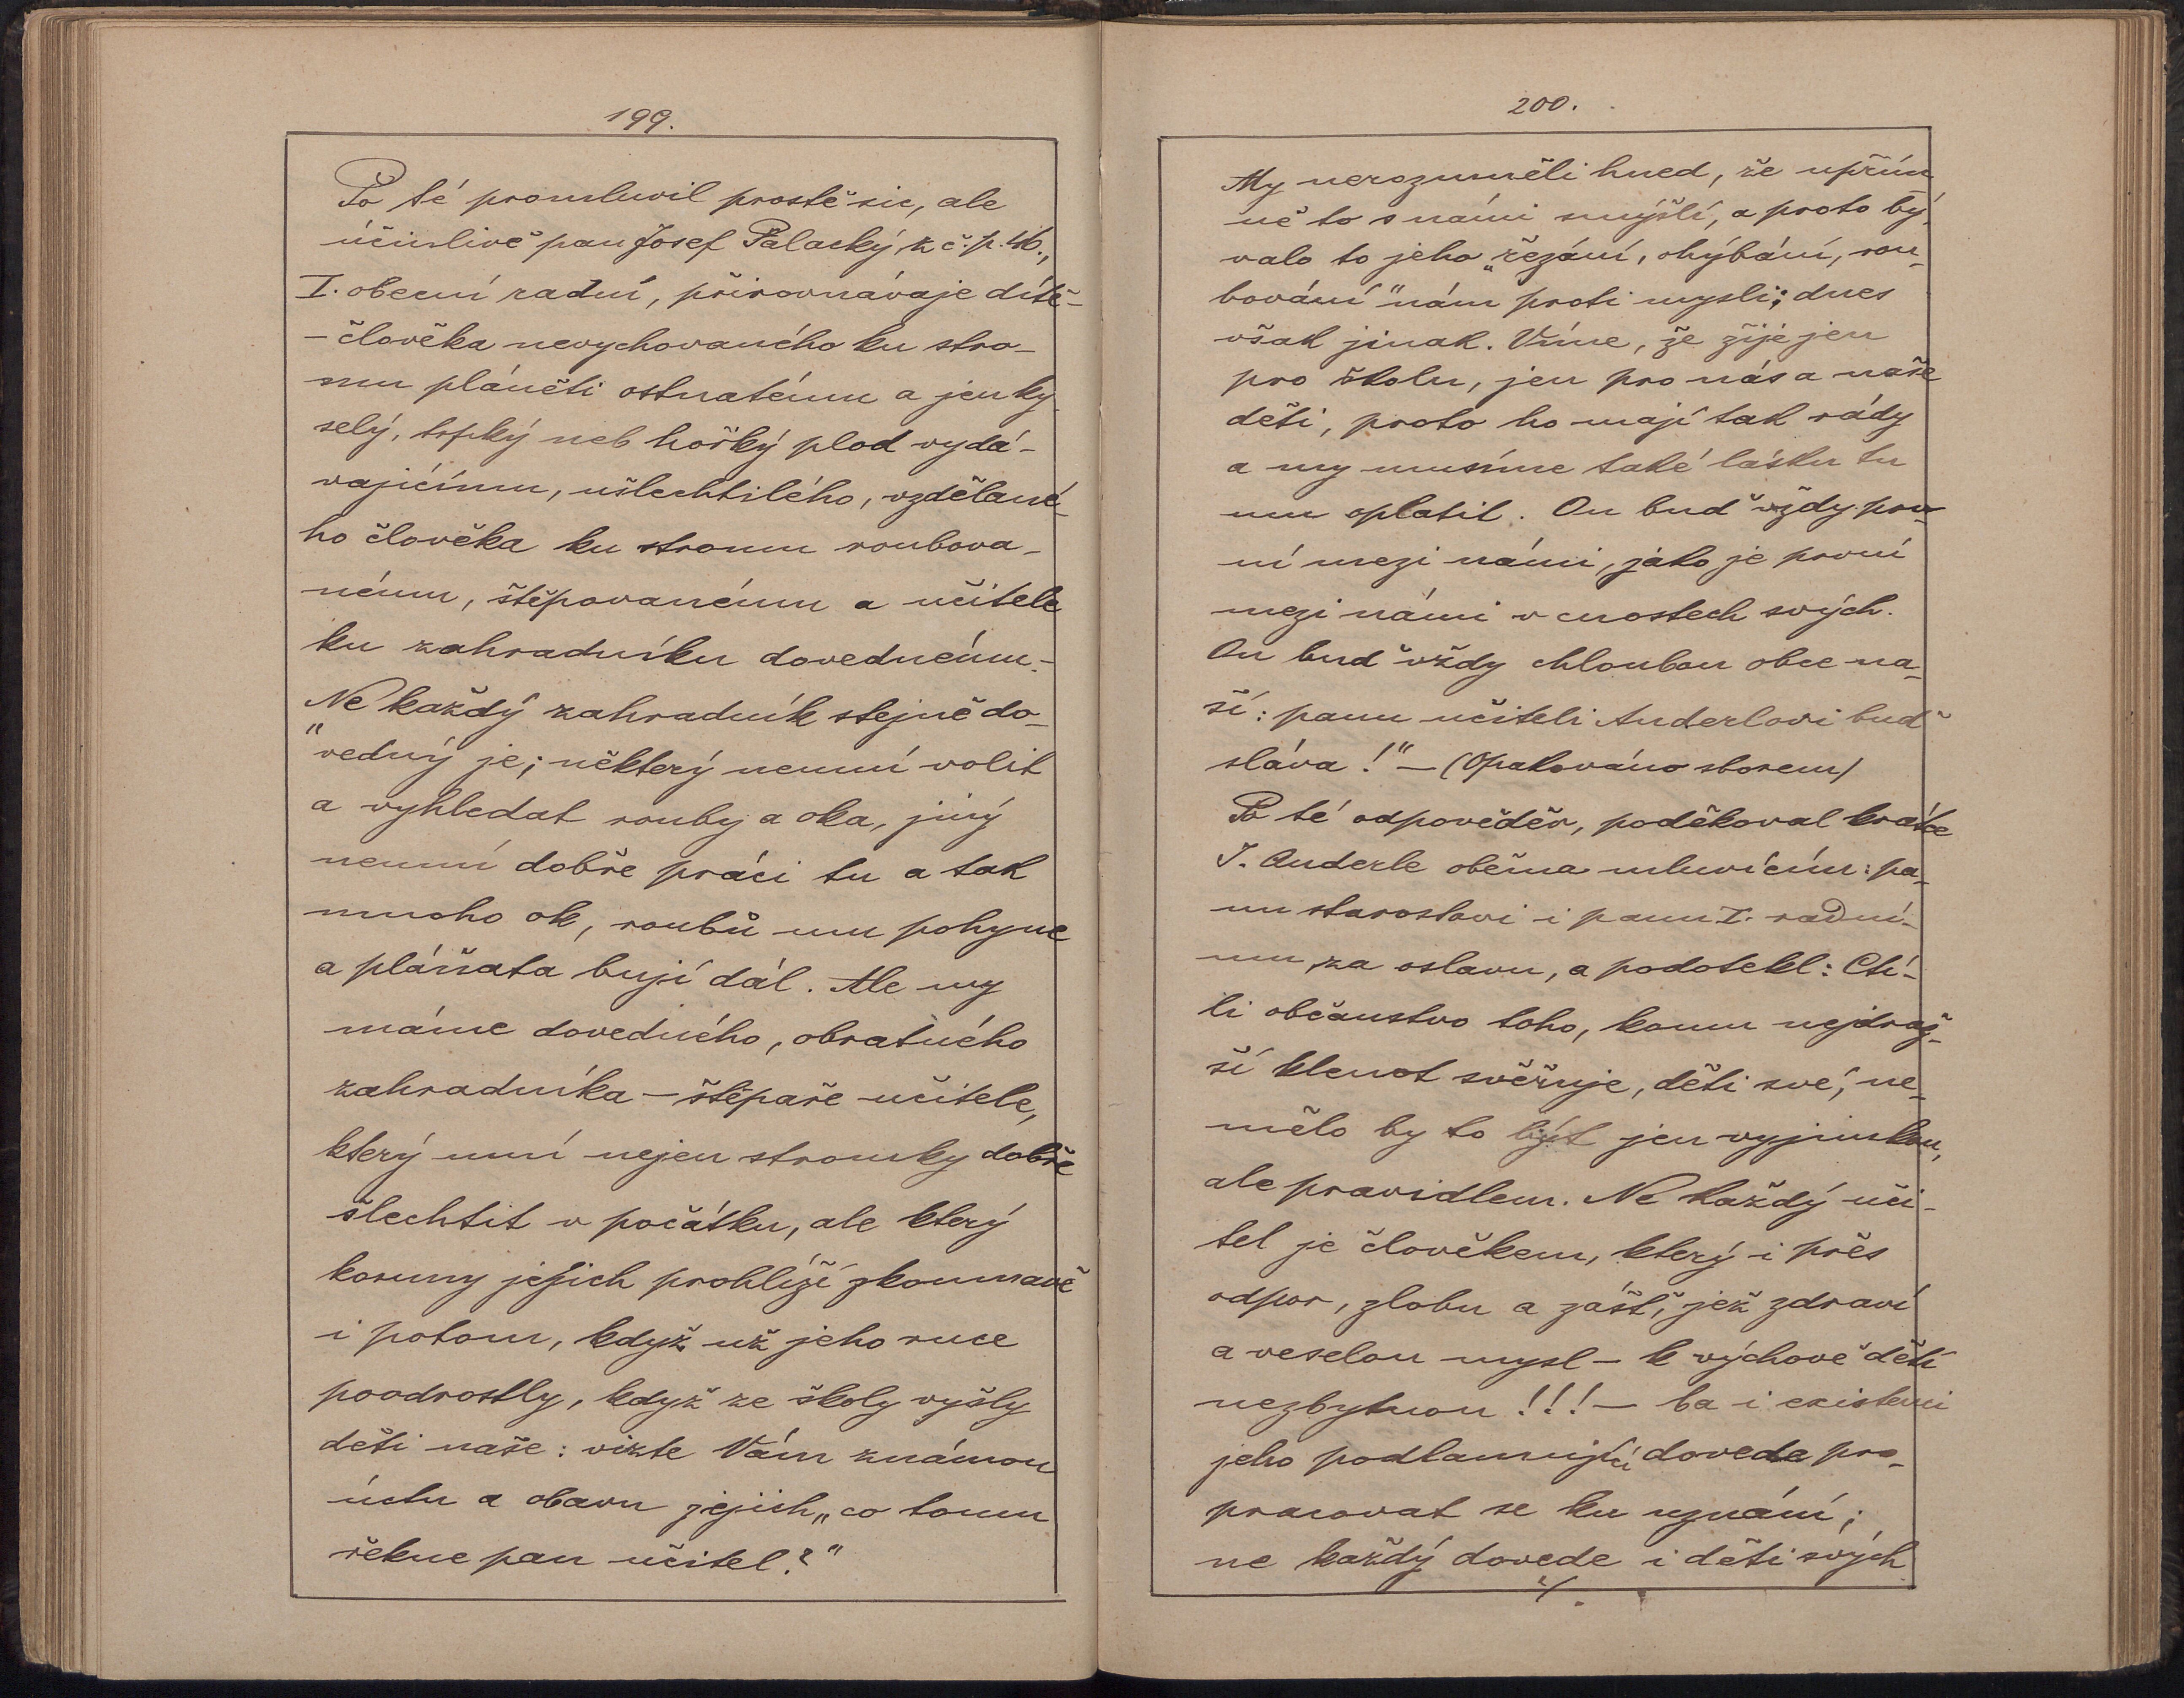 199.
Po té promluvil prostě sic, ale
účinlivě pan Josef Palacký z č. p. 46.,
I. obecní radní, přirovnávaje dítě-
- člověka nevychovaného ku stro-
mu pláněti ostnatému a jen ky-
selý, trpký neb hořký plod vydá-
vajícímu, ušlechtilého, vzdělané-
ho člověka ku stromu roubova-
nému, štěpovanému a učitele
ku zahradníku dovednému.-
"Ne každý zahradník stejně do-
vedný je; některý neumí volit
a vyhledat rouby a oka, jiný
neumí dobře práci tu a tak
mnoho ok, roubů mu pohyne
a pláňata bují dál. Ale my
máme dovedného, obratného
zahradníka - štěpaře - učitele,
který umí nejen stromky dobře
šlechtit v počátku, ale který
koruny jejich prohlíží zkoumavě
i potom, když už jeho ruce
poodrostly, když ze školy vyšly
děti naše: vizte Vám známou
úctu a obavu jejich „co tomu
řekne pan učitel?"
200.
My nerozuměli hned, že upřím-
ně to s námi smýšlí, a proto bý-
valo to jeho „řezání, ohýbání, rou-
bování" nám proti mysli; dnes
však jinak. Víme, že žije jen
pro školu, jen pro nás a naše
děti, proto ho mají tak rády
a my musíme také lásku tu
mu oplatit. On buď vždy prv-
ní mezi námi, jako je první
mezi námi v cnostech svých.
On buď vždy chloubou obce na-
ší: panu učiteli Anderlovi buď
sláva!" - (Opakováno sborem)
Po té odpověděv, poděkoval krátce
J. Anderle oběma mluvícím: pa-
nu starostovi i panu I. radní-
mu, za oslavu, a podotekl: Ctí-
li občanstvo toho, komu nejdraž-
ší klenot svěřuje, děti své, ne-
mělo by to být jen vyjimkou,
ale pravidlem. Ne každý uči-
tel je člověkem, který i přes
odpor, zlobu a zášť, jež zdraví
a veselou mysl - k výchově dětí
nezbytnou!!! - ba i existenci
jeho podlamující dovede pro-
pracovat se ku uznání;
ne každý dovede i děti svých
./.